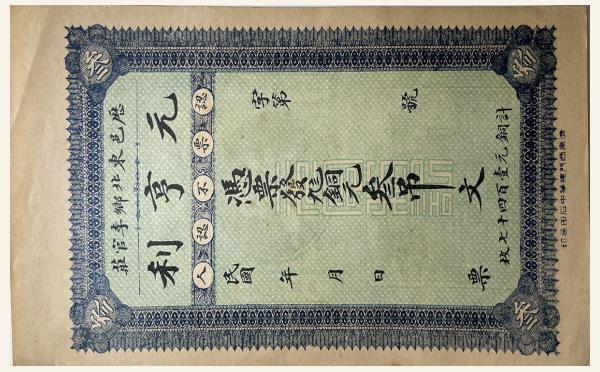 歷邑東北鄉李官莊
元亨利
認票不認人
字第 號
憑票發九八銅元叁吊文
民國 年 月 日 票
計銅元壹百四十七枚
叁
叁
叁
叁